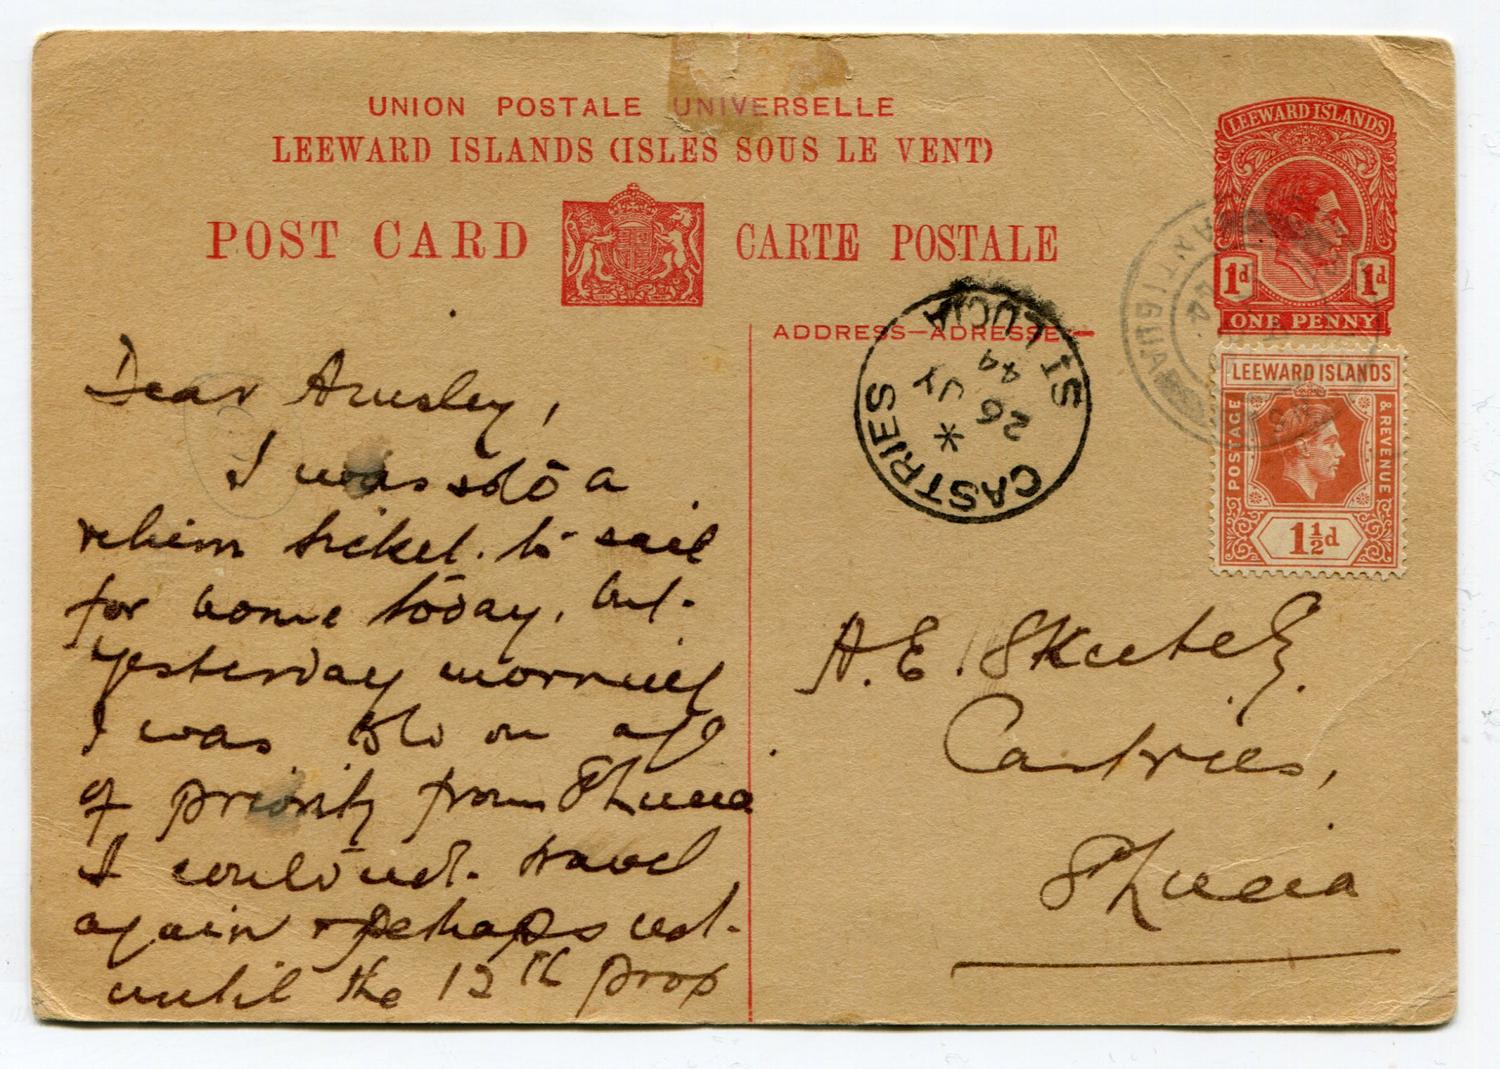 UNION POSTALE UNIVERSELLE
LEEWARD ISLANDS (ISLES SOUS LE VENT)
POST CARD CARTE POSTALE
ADDRESS—ADRESSE:—
LEEWARD ISLANDS
1d 1d
ONE PENNY
LEEWARD ISLANDS
POSTAGE & REVENUE
1½d
ANTIGUA
CASTRIES
ST LUCIA
*
26 JY
44
Dear Annsley,
I was sold a
return ticket. to sail
for home today, but.
yesterday morning
I was told on a/c
of priority from St Lucia
I could not. travel
again & perhaps not.
until the 12th prox
A. E. Skutely.
Castries,
St Lucia